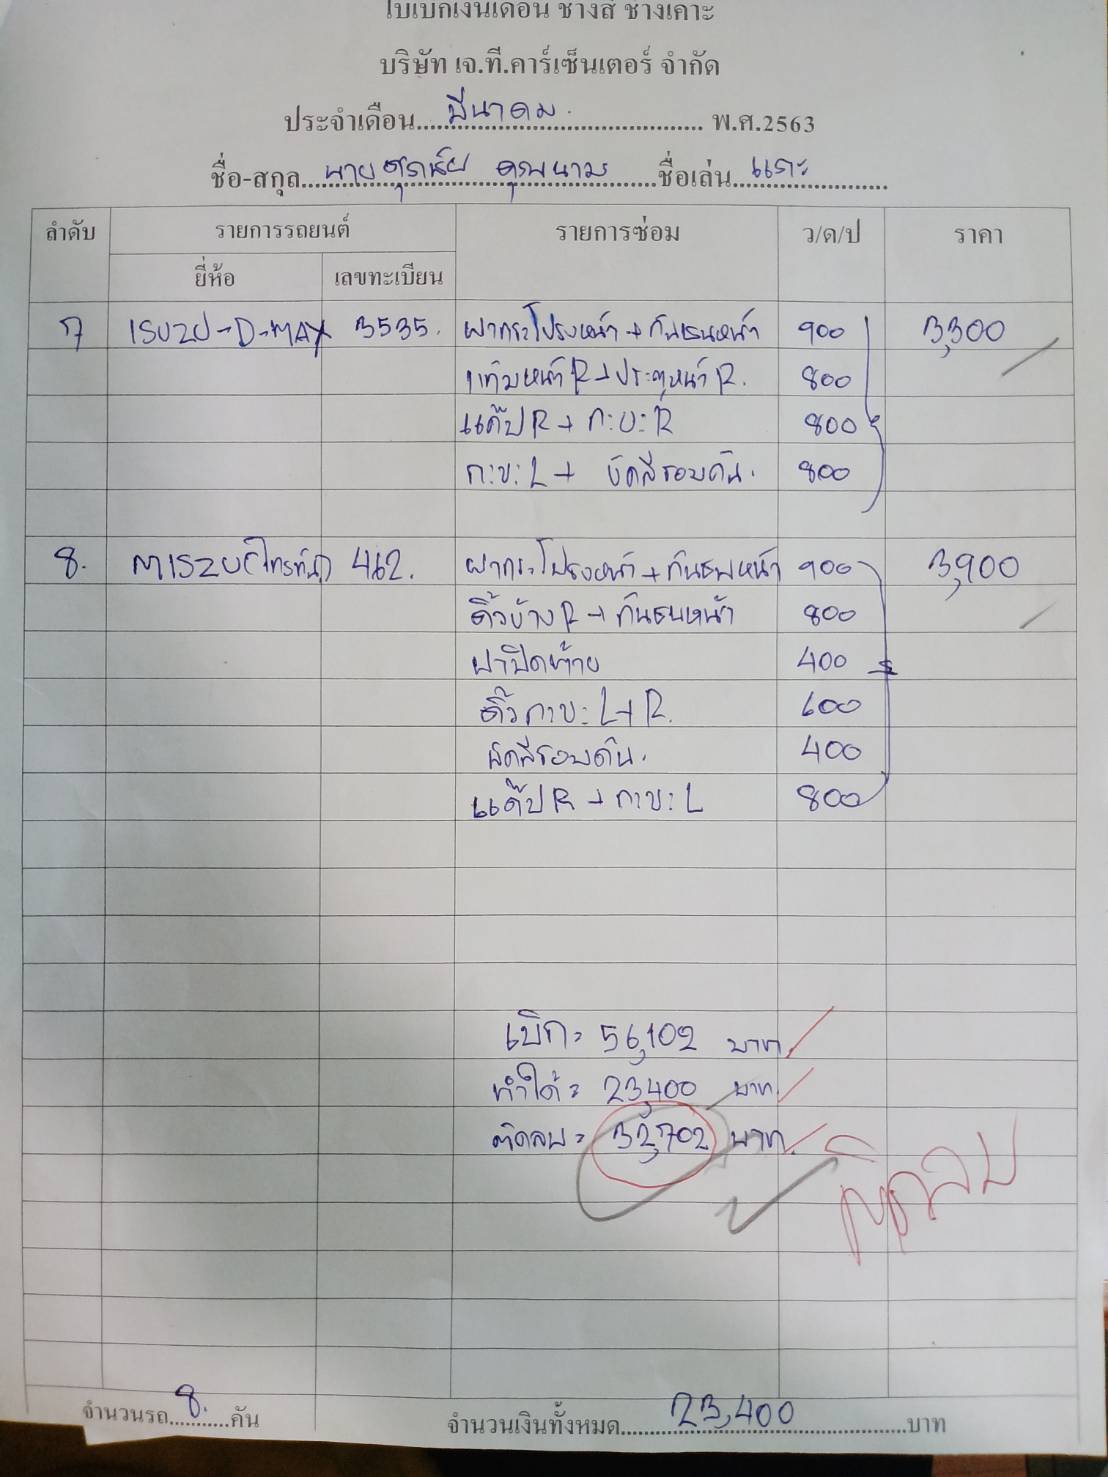 ใบเบิกเงินเดือน ช่างสี ช่างเคาะ
บริษัท เจ.ที.คาร์เซ็นเตอร์ จำกัด
ประจำเดือน มีนาคม พ.ศ.2563
ชื่อ-สกุล นาย ชื่อเล่น แคะ
ลำดับ รายการรถยนต์ รายการซ่อม ว/ด/ป ราคา
ยี่ห้อ เลขทะเบียน
7 ISUZU-D-MAX 3535. ฝากระโปรงหน้า + กันชนหน้า 900 3,300
แก้มหน้า R + ประตูหน้า R. 800
แค๊ป R + กะบะ R 800
กะบะ L + ขัดสีรอบคัน. 800
8. 462. ฝากระโปรงหน้า + กันชนหน้า 900 3,900
คิ้วข้าง R + กันชนหน้า 800
ฝาปิดท้าย 400
คิ้วกะบะ L+R. 600
ขัดสีรอบคัน. 400
แค๊ป R + กะบะ L 800
เบิก = 56,102 บาท
ทำได้ = 23,400 บาท.
ติดลบ = 32,702 บาท.
ติดลบ
จำนวนรถ 8. คัน จำนวนเงินทั้งหมด 23,400 บาท